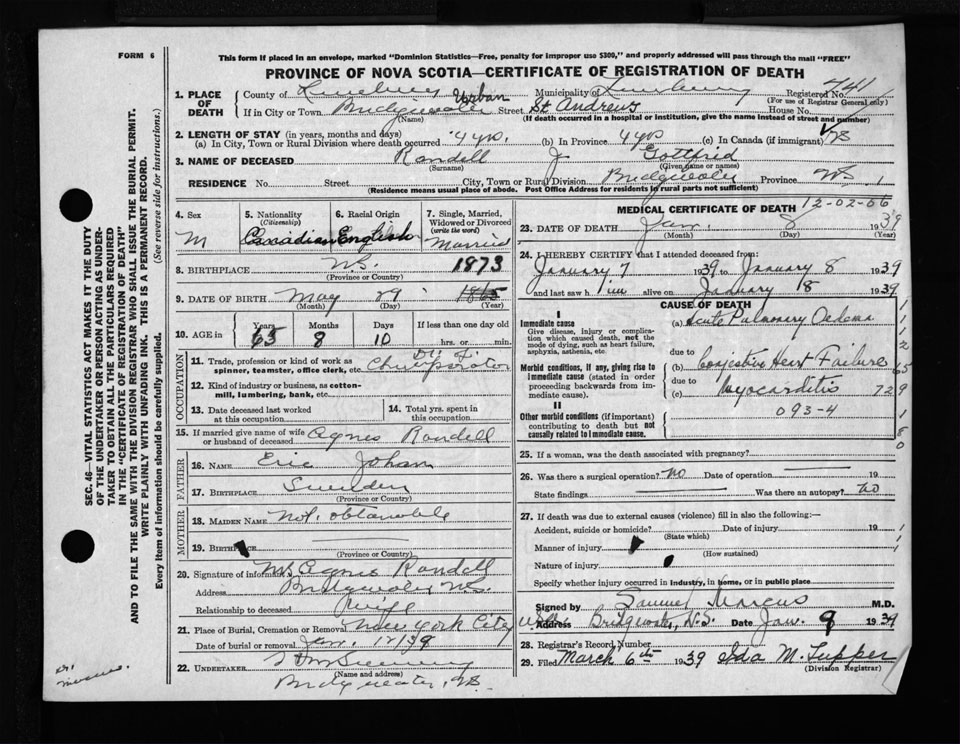 FORM 6
This form if placed in an envelope, marked "Dominion Statistics—Free, penalty for improper use $300," and properly addressed will pass through the mail "FREE"
PROVINCE OF NOVA SCOTIA—CERTIFICATE OF REGISTRATION OF DEATH
1. PLACE OF DEATH
County of Lunenburg Municipality of Lunenburg Registered No. 741
(For use of Registrar General only)
Urban
If in City or Town Bridgewater Street St. Andrews House No.
(Name) (If death occurred in a hospital or institution, give the name instead of street and number)
2. LENGTH OF STAY (in years, months and days)
(a) In City, Town or Rural Division where death occurred 4 yrs. (b) In Province 4 yrs (c) In Canada (if immigrant)
3. NAME OF DECEASED Randell J Gottfrid
(Surname) (Given name or names)
RESIDENCE No. Street City, Town or Rural Division Bridgewater Province N.S.
(Residence means usual place of abode. Post Office Address for residents in rural parts not sufficient)
4. Sex M
5. Nationality (Citizenship) Canadian
6. Racial Origin English
7. Single, Married, Widowed or Divorced (write the word) Married
8. BIRTHPLACE N.S.
(Province or Country)
1873
9. DATE OF BIRTH May 29 1865
(Month) (Day) (Year)
10. AGE in Years 65 Months 8 Days 10 If less than one day old hrs. or min.
OCCUPATION
11. Trade, profession or kind of work as spinner, teamster, office clerk, etc.
12. Kind of industry or business, as cotton-mill, lumbering, bank, etc.
13. Date deceased last worked at this occupation
14. Total yrs. spent in this occupation
15. If married give name of wife or husband of deceased Agnes Randell
FATHER
16. NAME Eric Johan
17. BIRTHPLACE Sweden
(Province or Country)
MOTHER
18. MAIDEN NAME Not obtainable
19. BIRTHPLACE
(Province or Country)
20. Signature of informant Mrs Agnes Randell
Address Bridgewater N.S.
Relationship to deceased Wife
21. Place of Burial, Cremation or Removal New York City
Date of burial or removal Jan. 12/39
22. UNDERTAKER
(Name and address)
Bridgewater, N.S.
MEDICAL CERTIFICATE OF DEATH 12-02-06
23. DATE OF DEATH Jan. 8 1939
(Month) (Day) (Year)
24. I HEREBY CERTIFY that I attended deceased from:
January 7 1939 to January 8 1939
and last saw him alive on January 8 1939
CAUSE OF DEATH
I
Immediate cause
Give disease, injury or complication which caused death, not the mode of dying, such as heart failure, asphyxia, asthenia, etc
(a) Acute Pulmonary Oedema
due to
Morbid conditions, if any, giving rise to immediate cause (stated in order proceeding backwards from immediate cause).
Congestive Heart Failure
due to
(c) Myocarditis 729
093-4
II
Other morbid conditions (if important) contributing to death but not causally related to immediate cause.
25. If a woman, was the death associated with pregnancy?
26. Was there a surgical operation? No Date of operation 19
State findings Was there an autopsy? No
27. If death was due to external causes (violence) fill in also the following:—
Accident, suicide or homicide? Date of injury 19
(State which)
Manner of injury
(How sustained)
Nature of injury
Specify whether injury occurred in industry, in home, or in public place
Signed by Samuel Marcus M.D.
Address Bridgewater, N.S. Date Jan. 9 1939
28. Registrar's Record Number
29. Filed March 6th 1939 Ida M. Tupper
(Division Registrar)
SEC. 46—VITAL STATISTICS ACT MAKES IT THE DUTY
OF THE UNDERTAKER OR PERSON ACTING AS UNDERTAKER
TO OBTAIN ALL THE PARTICULARS REQUIRED
IN THE "CERTIFICATE OF REGISTRATION OF DEATH"
AND TO FILE THE SAME WITH THE DIVISION REGISTRAR WHO SHALL ISSUE THE BURIAL PERMIT.
WRITE PLAINLY WITH UNFADING INK. THIS IS A PERMANENT RECORD.
Every item of information should be carefully supplied. (See reverse side for instructions.)